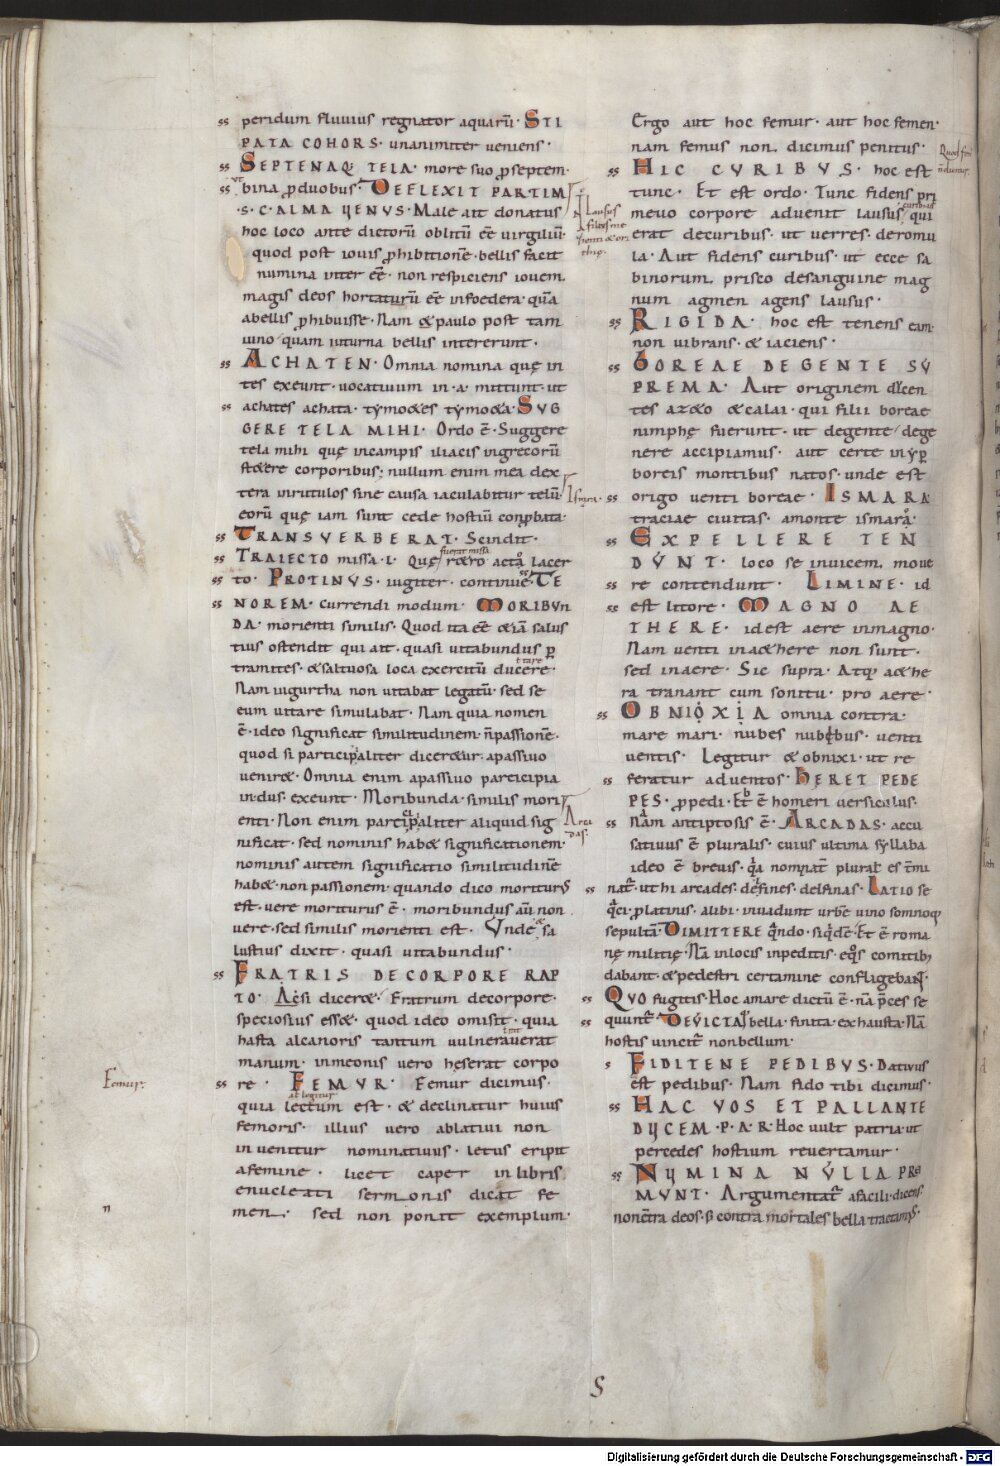 peridum fluuius regnator aquarū· STI
PATA COHORS· unanimiter ueniens·
SEPTENAQ; TELA· more suo ꝓseptem·
bina ꝓduobus· DEFLEXIT PARTIM
·S·C·ALMA VENUS· Male ait donatus
hoc loco ante dictorū oblitū eē uirgiliū·
quod post iouis ꝓhibitionē· bellis facit
numina inter eē· non respiciens iouem
magis deos hortaturū eē infoedera· quā
abellis ꝓhibuisse· Nam & paulo post tam
iuno quam iuturna bellis intererunt·
ACHATEN· Omnia nomina quę in
tes exeunt· uocatiuum in·a· mittunt· ut
achates achata· tymo&es tymo&a· SVG
GERE TELA MIHI· Ordo ē· Suggere
tela mihi quę incampis iliacis ingrecorū
st&ere corporibus; nullum enim mea dex
tera inrutulos sine causa iaculabitur telū·
eorū quę iam sunt cede hostiū conꝓbata·
TRANSVERBERAT· Scindit·
TRAIECTO missa·l· Quę r&ro acta lacer
to· PROTINVS· iugiter· continue· TE
NOREM· currendi modum· MORIBVN
DA· morienti similis· Quod ita eē &iā salus
tius ostendit qui ait· quasi uitabundus ꝑ
tramites· & saltuosa loca exercitū ducere·
Nam iugurtha non uitabat legatū· sed se
eum uitare simulabat· Nam quia nomen
ē· ideo significat similitudinem· n̄ passionē·
quod si participialiter dicer&ur· apassiuo
uenir&· Omnia enim apassiuo participia
in·dus· exeunt· Moribunda· similis mori
enti· Non enim participialiter aliquid sig
nificat· sed nominis hab& significationem·
nominis autem significatio similitudinē
hab&· non passionem· quando dico moriturus
est· uere moriturus ē· moribundus aū non
uere· sed similis morienti est· Vnde & sa
lustius dixit· quasi uitabundus·
FRATRIS DECORPORE RAP
TO· Acsi dicer&· Fratrum decorpore·
speciosius ess&· quod ideo omisit· quia
hasta alcanoris tantum uulnerauerat
manum· inmeonis uero heserat corpo
re· FEMVR· Femur dicimus·
quia lectum est· & declinatur huius
femoris· illius uero ablatiui non
inuenitur nominatiuus· letus eripit
afemine· licet caper in libris
enucleati sermonis dicat fe
men· sed non ponit exemplum·
Femur·
Lausus
filius me
Ismara·
Arca
das·
Ergo aut hoc femur· aut hoc femen·
nam femus non dicimus penitus·
HIC CVRIBVS· hoc est
tunc· Et est ordo· Tunc fidens pri
meuo corpore aduenit lausus qui
erat decuribus· ut uerres· deromu
la· Aut fidens curibus· ut ecce sa
binorum prisco desanguine mag
num agmen agens lausus·
RIGIDA· hoc est tenens eam·
non uibrans· & iaciens·
BOREAE DEGENTE SV
PREMA· Aut originem dicen
tes az&o & calai· qui filii boreae
nimphę fuerunt· ut degente dege
nere accipiamus· aut certe inyꝑ
boreis montibus natos· unde est
origo uenti boreae· ISMARA
traciae ciuitas· amonte ismara·
EXPELLERE TEN
DVNT· loco se inuicem moue
re contendunt· LIMINE· id
est litore· MAGNO AE
THERE· idest aere inmagno·
Nam uenti ina&here non sunt·
sed inaere· Sic supra· Atq; a&he
ra tranant cum sonitu· pro aere·
OBNIXIA omnia contra·
mare mari· nubes nubibus· uenti
uentis· Legitur & obnixi· ut re
feratur aduentos· HERET PEDE
PES· ꝓpedi· Et ē homeri uersiculus·
Nam antiptosis ē· ARCADAS· accu
satiuus ē pluralis· cuius ultima syllaba
ideo ē breuis· qa nominat plural es tmi
nat· ut hi arcades· delfines· delfinas· LATIO se
qci ꝓlatinus· alibi· inuadunt urbē uino somnoq;
sepultā· DIMITTERE qndo· siqdē· Et ē roma
nę militię· Nā inlocis inpeditis· eqs comitib;
dabant· & pedestri certamine confligebant·
QVO fugitis· Hoc amare dictū ē· nā pces se
quunt· DEVICTA bella· finita· exhausta· Nā
hostis uincit non bellum·
FIDITENE PEDIBVS· Datiuus
est pedibus· Nam fido tibi dicimus·
HAC VOS ET PALLANTE
DVCEM·P·A·R· Hoc uult patria· ut
percedes hostium reuertamur·
NVMINA NVLLA PRE
MVNT· Argumentat afacili· dicens·
noncontra deos· s; contra mortales bella tractamus·
S
Digitalisierung gefördert durch die Deutsche Forschungsgemeinschaft - DFG